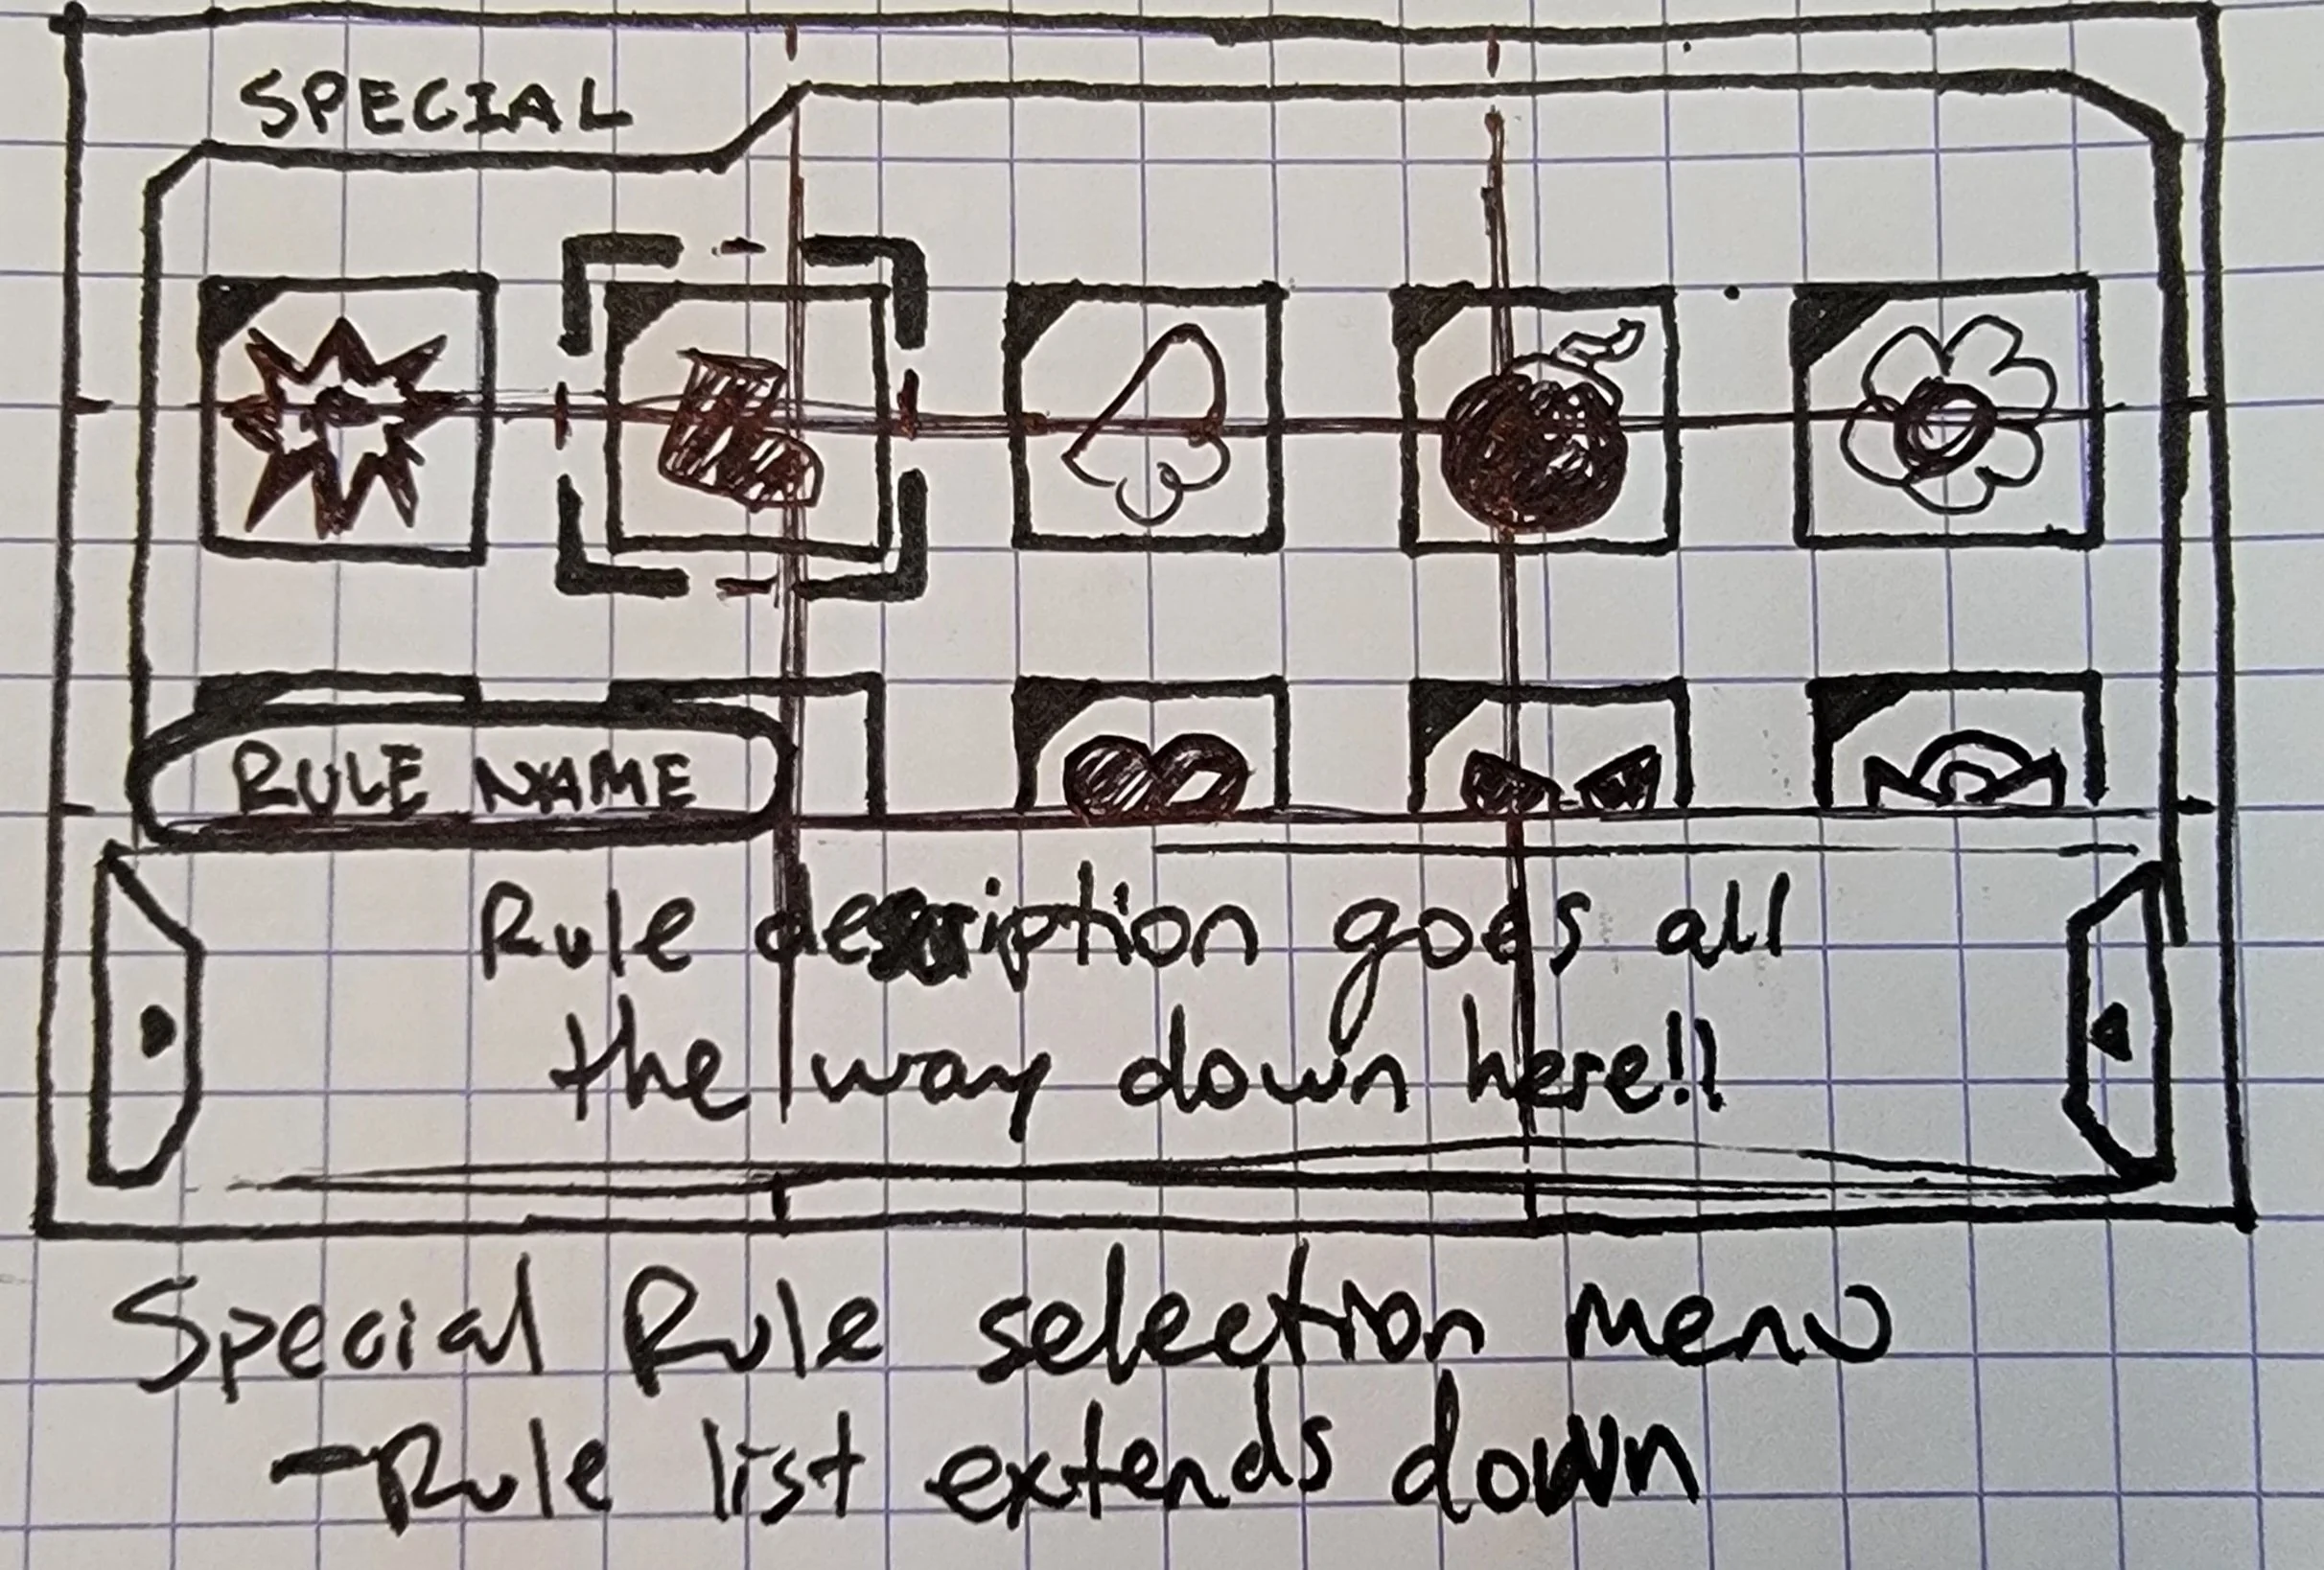 SPECIAL
RULE NAME
Rule description goes all
the way down here!!
Special Rule selection menu
-Rule list extends down